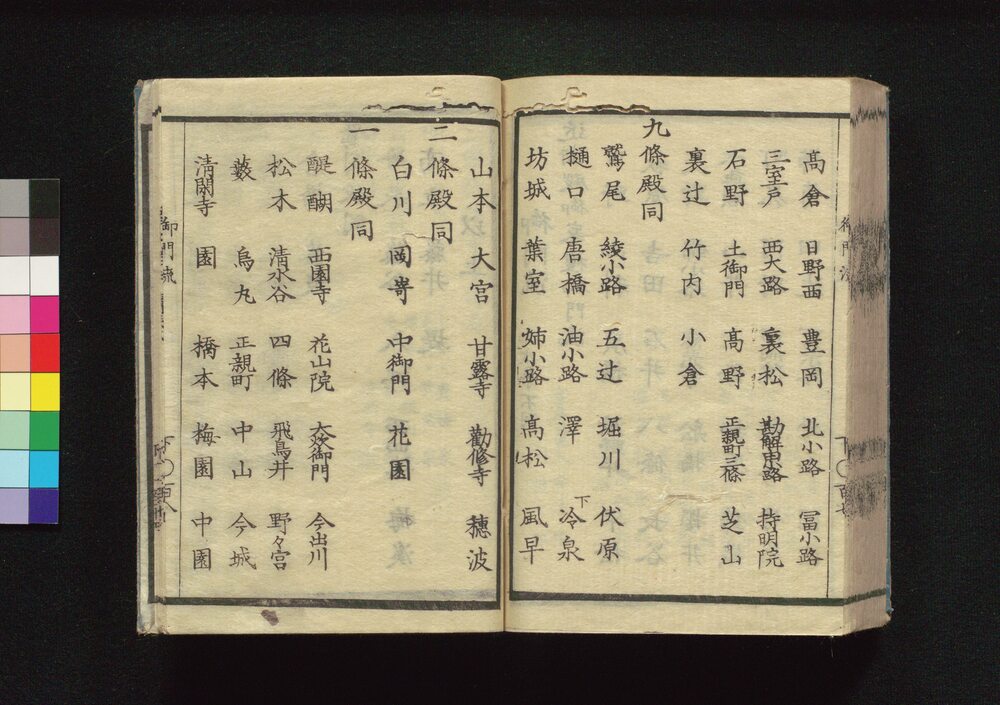 髙倉 日野西 豊岡 北小路 冨小路
三室戸 西大路 裏松 勘解由路 持明院
石野 土御門 髙野 正親町三條 芝山
裏辻 竹内 小倉
九條殿同
鷲尾 綾小路 五辻 堀川 伏原
樋口 唐橋 油小路 澤 下冷泉
坊城 葉室 姉小路 髙松 風早
山本 大宮 甘露寺 勸修寺 穂波
二條殿同
白川 岡嵜 中御門 花園
一條殿同
醍醐 西園寺 花山院 大炊御門 今出川
松木 清水谷 四條 飛鳥井 野々宮
藪 烏丸 正親町 中山 今城
清閑寺 園 橋本 梅園 中園
御門